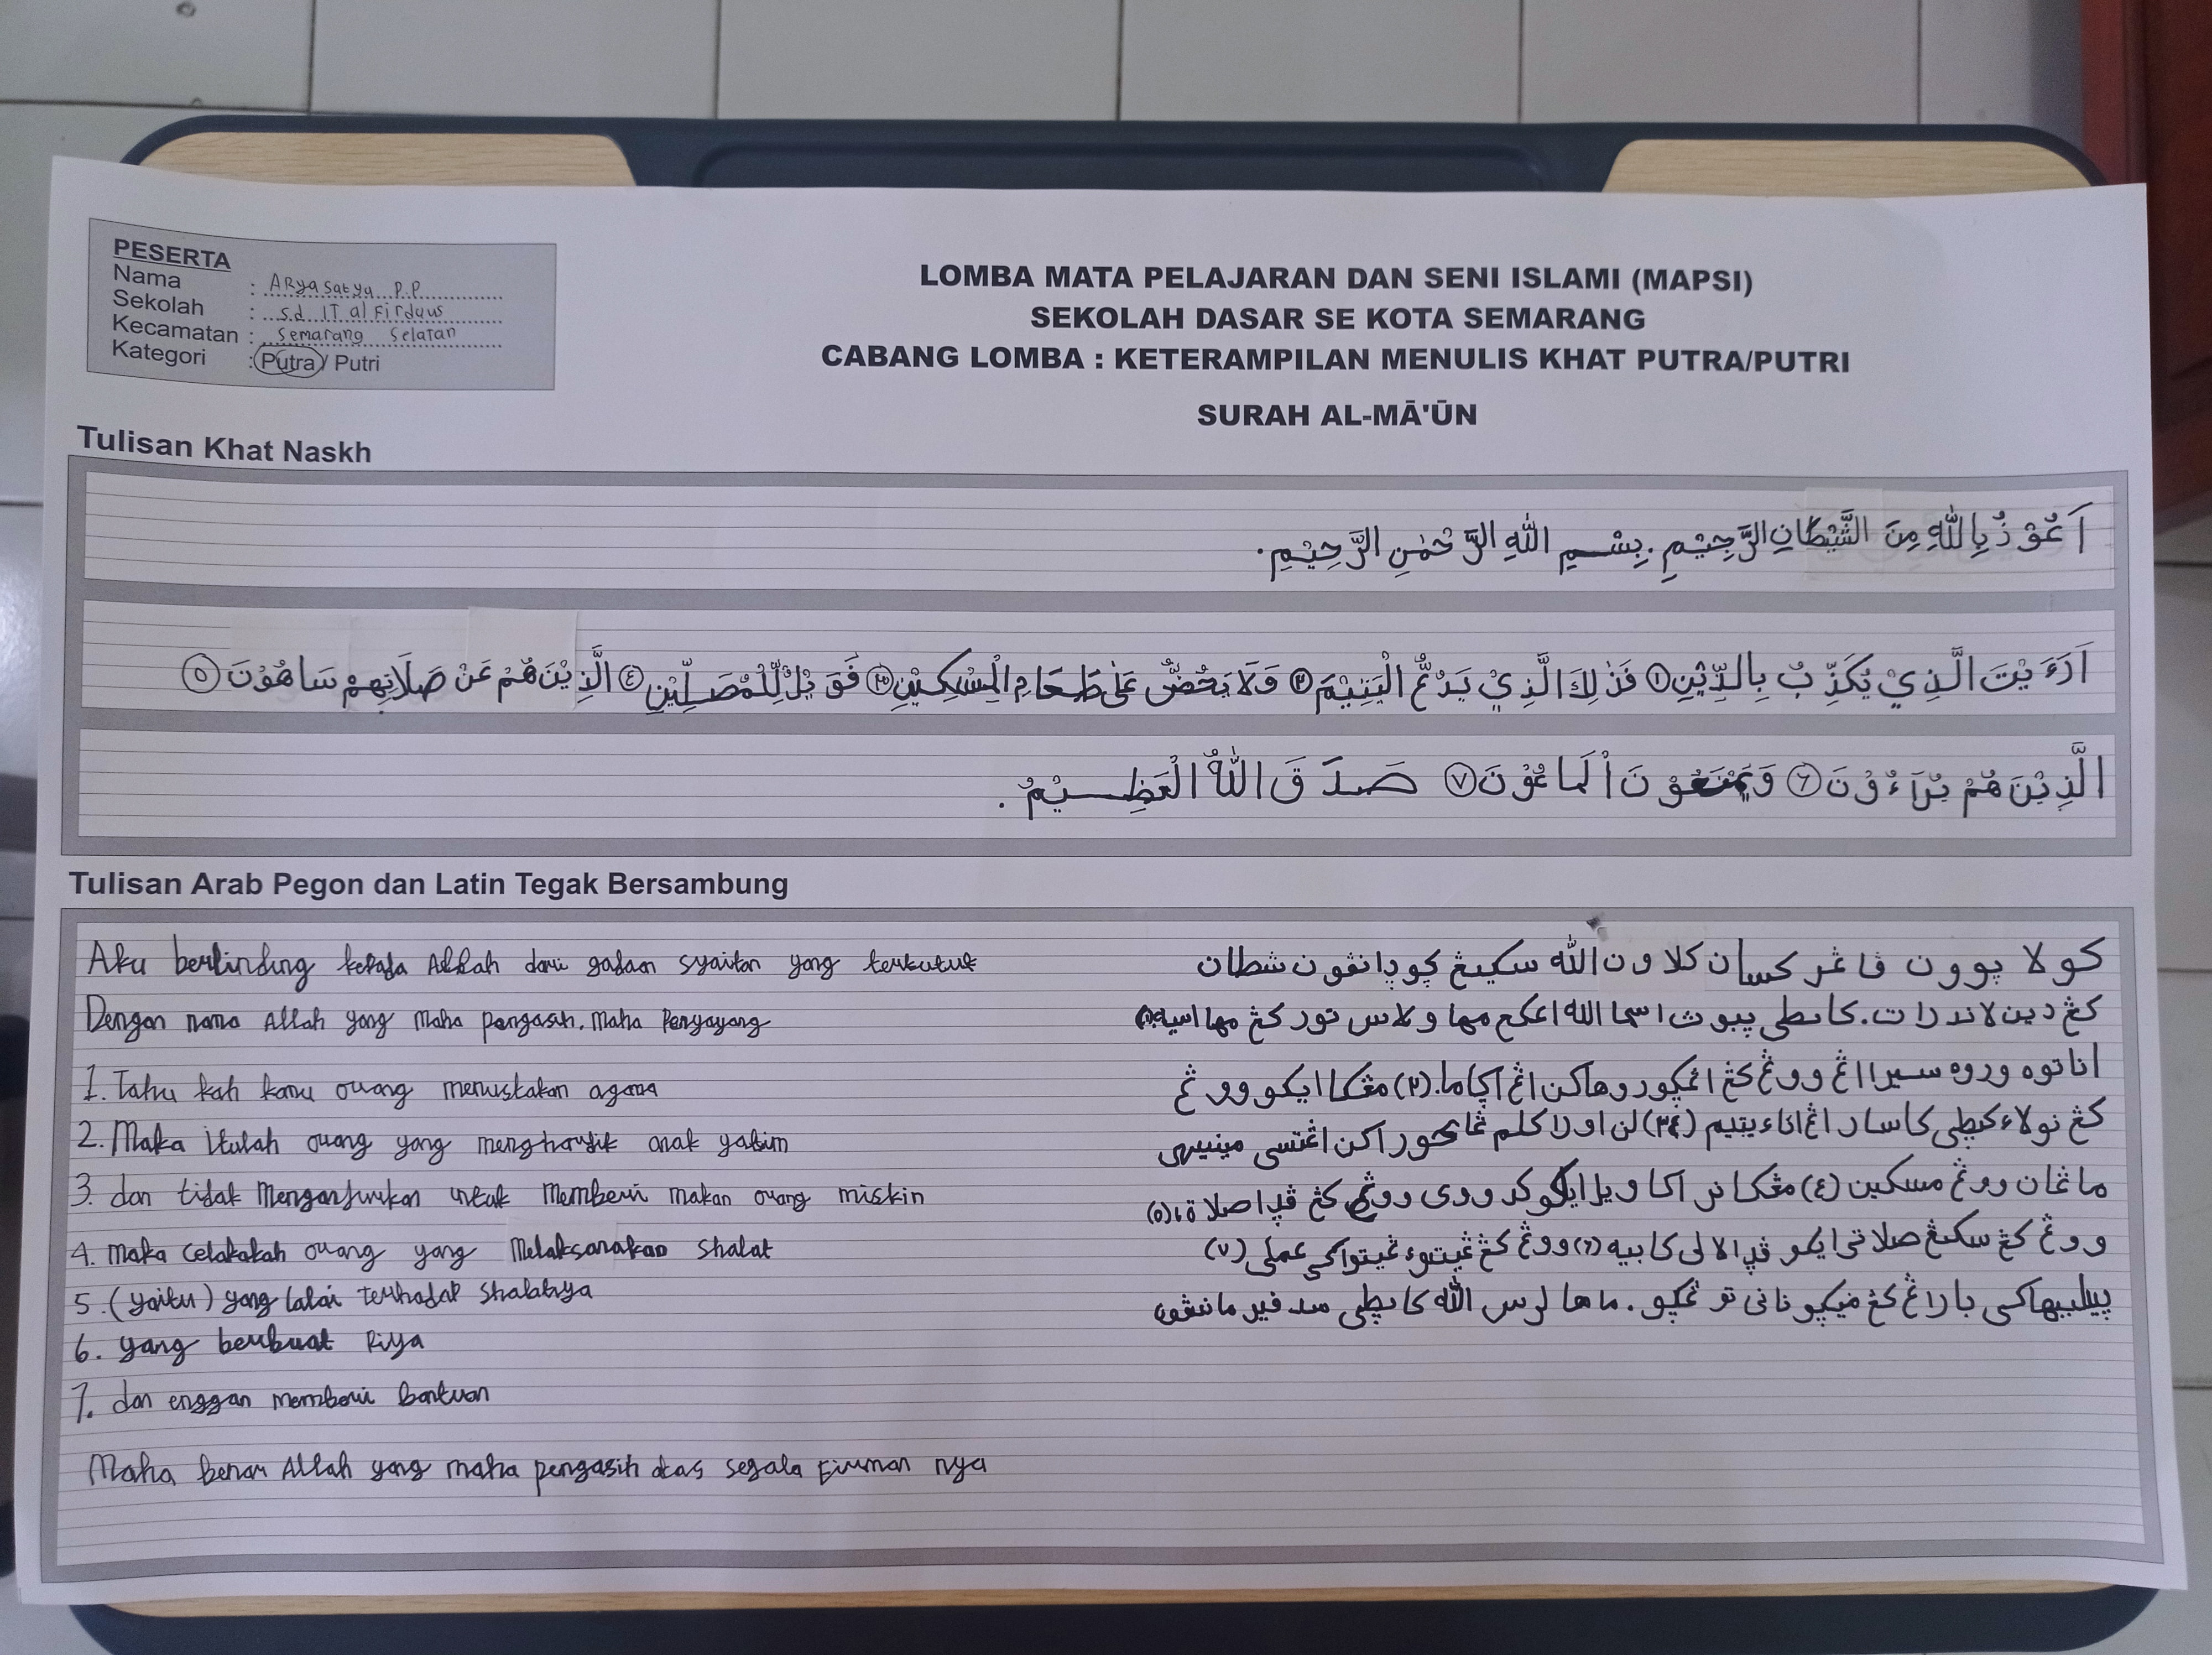 PESERTA
Nama : Aryasatya P.P
Sekolah : s.d IT al Firdaus
Kecamatan : Semarang Selatan
Kategori : Putra / Putri
LOMBA MATA PELAJARAN DAN SENI ISLAMI (MAPSI)
SEKOLAH DASAR SE KOTA SEMARANG
CABANG LOMBA : KETERAMPILAN MENULIS KHAT PUTRA/PUTRI
SURAH AL-MĀ'ŪN
Tulisan Khat Naskh
اَعُوْذُ بِاللّٰهِ مِنَ الشَّيْطَانِ الرَّجِيْمِ. بِسْمِ اللّٰهِ الرَّحْمٰنِ الرَّحِيْمِ.
اَرَءَيْتَ الَّذِيْ يُكَذِّبُ بِالدِّيْنِ ١ فَذٰلِكَ الَّذِيْ يَدُعُّ الْيَتِيْمَ ٢ وَلَا يَحُضُّ عَلٰى طَعَامِ الْمِسْكِيْنِ ٣ فَوَيْلٌ لِّلْمُصَلِّيْنَ ٤ الَّذِيْنَ هُمْ عَنْ صَلَاتِهِمْ سَاهُوْنَ ٥
الَّذِيْنَ هُمْ يُرَآءُوْنَ ٦ وَيَمْنَعُوْنَ الْمَاعُوْنَ ٧ صَدَقَ اللّٰهُ الْعَظِيْمُ.
Tulisan Arab Pegon dan Latin Tegak Bersambung
Aku berlindung kepada Allah dari godaan syaitan yang terkutuk
Dengan nama Allah yang Maha pengasih, Maha Penyayang
1. Tahu kah kamu orang menustakan agama
2. Maka itulah orang yang menghardik anak yatim
3. dan tidak Menganjurkan untuk Memberi makan orang miskin
4. Maka celakakah orang yang Melaksanakan shalat
5. (yaitu) yang lalai terhadap shalatnya
6. yang berbuat Riya
7. dan enggan memberi bantuan
Maha benar Allah yang maha pengasih atas segala Firman nya
كولا پوون ڤاڠر كسان كلاون الله سكيڠ كودانڤون شطان
كڠ دين لاندرات. كانطي پبوت اسما الله اڠكع مها ولاس تور كڠ مها اسيه
اناتوه وروه سيرا اڠ ووڠ كڠ اڠكورو وهاكن اڠ اكاما. (٢) مڠكا ايكو ووڠ
كڠ نولاء كاسار اڠ اناء يتيم لن اورا كلم
ماڠان ووڠ مسكين (٤) مڠكا ويل ايكو ووڠ كڠ ڤدا صلاة، (٥)
ووڠ كڠ سكيڠ صلاتي ايكو ڤدا لالي كابيه (٦) ووڠ كڠ عملى (٧)
باراڠ كڠ الله